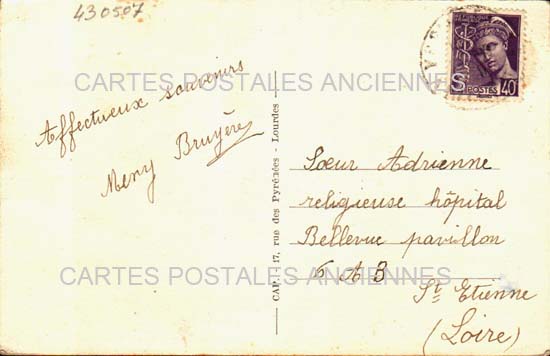 430507
CARTES POSTALES ANCIENNES
Affectueux souvenirs
Meny Bruyère
CAP. - 17, rue des Pyrénées - Lourdes
POSTES 40
Sœur Adrienne
religieuse hôpital
Bellevue pavillon
6 A B
St Etienne
(Loire)
CARTES POSTALES ANCIENNES